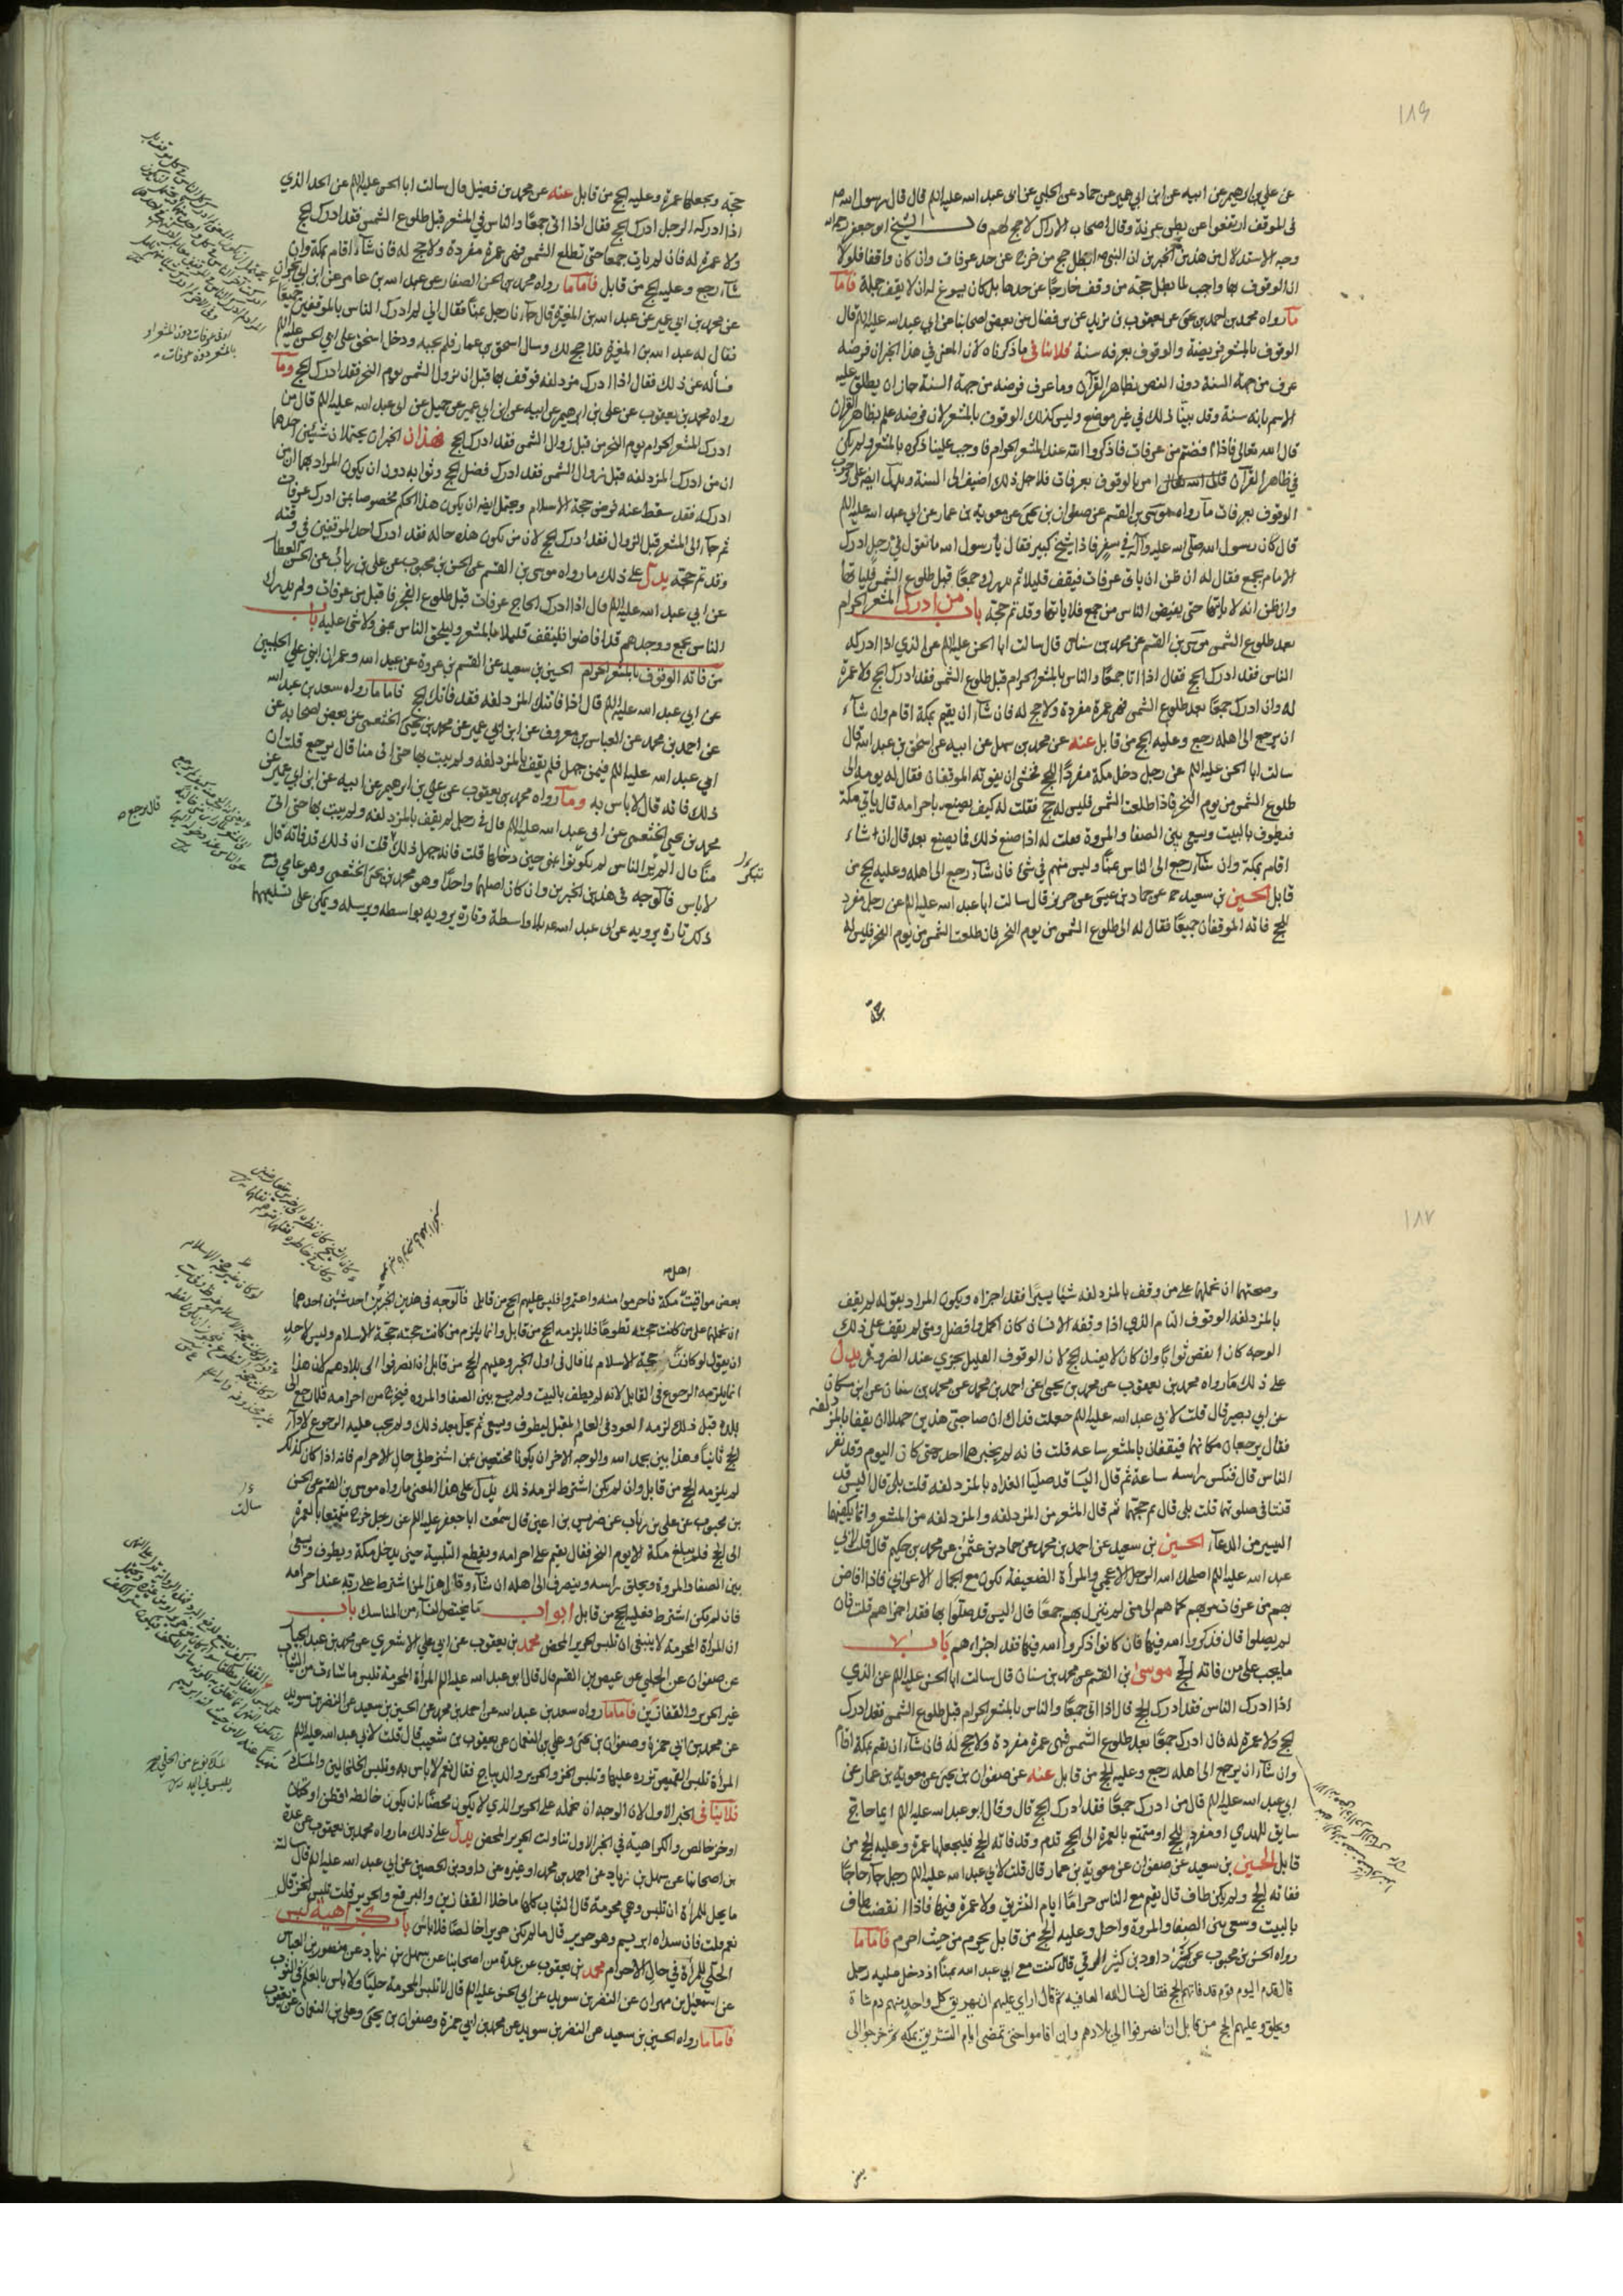 عن علي بن ابرهيم عن ابيه عن ابن ابي عمير عن حماد عن الحلبي عن ابى عبد الله عليه الم قال قال رسول الله ص
فى الموقف ارتفعوا عن بطن عرنة وقال اصحاب الاراك لا حج لهم الشيخ ابو جعفر رحمه الله
وجه الاستدلال من هذين الخبرين ان النبي ص ابطل حج من خرج عن حد عرفات وان كان واقفا فلولا
ان الوقوف بها واجب لما بطل حجة من وقف خارجا عن حدها بل كان يسوغ له ان لا يقف جملة فاما
ما رواه محمد بن احمد بن يحيى عن يعقوب بن يزيد عن بن فضال عن بعض اصحابنا عن ابي عبد الله عليه الم قال
الوقوف بالمشعر فريضة والوقوف بعرفه سنة فلا ينافى ما ذكرناه لان المعنى في هذا الخبر ان فرضه
عرف من جهة السنة دون النص بظاهر القرآن وما عرف فرضه من جهة السنة جاز ان يطلق عليه
الاسم بانه سنة وقد بينا ذلك في غير موضع وليس كذلك الوقوف بالمشعر لان فرضه علم بظاهر القرآن
قال الله تعالى فاذا افضتم من عرفات فاذكروا الله عند المشعر الحرام فاوجب علينا ذكره بالمشعر ولم يكن
في ظاهر القرآن امر بالوقوف بعرفات فلاجل ذلك اضيف الى السنة ويدل ايضا على وجوب
الوقوف بعرفات ما رواه موسى بن القسم عن صفوان بن يحيى عن معوية بن عمار عن ابي عبد الله عليه الم
قال كان رسول الله صلى الله عليه وآله في سفر فاذا شيخ كبير فقال يا رسول الله ما تقول في رجل ادرك
الامام بجمع فقال له ان ظن ان ياتى عرفات فيقف قليلا ثم يدرك جمعا قبل طلوع الشمس فلياتها
وان ظن انه لا ياتها حتى يفيض الناس من جمع فلا ياتها وقد تم حجه باب من ادرك المشعر الحرام
بعد طلوع الشمس موسى بن القسم عن محمد بن سنان قال سالت ابا الحسن عليه الم عن الذي اذا ادركه
الناس فقد ادرك الحج فقال اذا اتا جمعا والناس بالمشعر الحرام قبل طلوع الشمس فقد ادرك الحج ولا عمرة
له وان ادرك جمعا بعد طلوع الشمس فهى عمرة مفردة ولا حج له فان شاء ان يقيم بمكة اقام وان شاء
ان يرجع الى اهله رجع وعليه الحج من قابل عنه عن محمد بن سهل عن ابيه عن اسحق بن عبد الله قال
سالت ابا الحسن عليه الم عن رجل دخل مكة مفردا للحج فخشي ان يفوته الموقفان فقال له يومه الى
طلوع الشمس من يوم النحر فاذا طلعت الشمس فليس له حج فقلت له كيف يصنع باحرامه قال ياتي مكة
فيطوف بالبيت ويسعى بين الصفا والمروة فقلت له اذا صنع ذلك فما يصنع بعد قال ان شاء
اقام بمكة وان شاء رجع الى الناس بمنا وليس منهم في شئ فان شاء رجع الى اهله وعليه الحج من
قابل الحسين بن سعيد عن حماد بن عيسى عن حريز قال سالت ابا عبد الله عليه الم عن رجل مفرد
للحج فاته الموقفان جميعا فقال له الى طلوع الشمس من يوم النحر فان طلعت الشمس من يوم النحر فليس له
حجة ويجعلها عمرة وعليه الحج من قابل عنه عن محمد بن فضيل قال سالت ابا الحسن عليه الم عن الحد الذي
اذا ادركه الرجل ادرك الحج فقال اذا اتى جمعا والناس في المشعر قبل طلوع الشمس فقد ادرك الحج
ولا عمرة له فان لم يات جمعا حتى تطلع الشمس فهي عمرة مفردة ولا حج له فان شاء اقام بمكة وان
شاء رجع وعليه الحج من قابل فاما ما رواه محمد بن الحسن الصفار عن عبد الله بن عامر عن ابن ابي نجران
عن محمد بن ابي عمير عن عبد الله بن المغيرة قال جاءنا رجل بمنا فقال اني لم ادرك الناس بالموقفين جميعا
فقال له عبد الله بن المغيرة فلا حج لك وسال اسحق بن عمار فلم يجبه ودخل اسحق على ابي الحسن عليه الم
فسأله عن ذلك فقال اذا ادرك مزدلفه فوقف بها قبل ان تزول الشمس يوم النحر فقد ادرك الحج وما
رواه محمد بن يعقوب عن علي بن ابرهيم عن ابيه عن ابن ابي عمير عن جميل عن ابى عبد الله عليه الم قال من
ادرك المشعر الحرام يوم النحر من قبل زوال الشمس فقد ادرك الحج فهذان الخبران يحتملان شئين احدهما
ان من ادرك المزدلفه قبل زوال الشمس فقد ادرك فضل الحج وثوابه دون ان يكون المراد بهما ان من
ادركه فقد سقط عنه فرض حجة الاسلام ويحتمل ايضا ان يكون هذا الحكم مخصوصا بمن ادرك عرفات
ثم جاء الى المشعر قبل الزوال فقد ادرك الحج لان من تكون هذه حاله فقد ادرك احد الموقفين في وقته
وقد تم حجته يدل على ذلك ما رواه موسى بن القسم عن الحسن بن محبوب عن علي بن رئاب عن الحسن العطار
عن ابي عبد الله عليه الم قال اذا ادرك الحاج عرفات قبل طلوع الفجر فاقبل من عرفات ولم يدرك
الناس بجمع ووجدهم قد افاضوا فليقف قليلا بالمشعر وليلحق الناس بمنى ولا شئ عليه باب
من فاته الوقوف بالمشعر الحرام الحسين بن سعيد عن القسم بن عروة عن عبيد الله وعمران ابني علي الحلبيين
عن ابي عبد الله عليه الم قال اذا فاتتك المزدلفه فقد فاتك الحج فاما ما رواه سعد بن عبد الله
عن احمد بن محمد عن العباس بن معروف عن ابن ابي عمير عن محمد بن يحيى الخثعمي عن بعض اصحابه عن
ابي عبد الله عليه الم فيمن جهل فلم يقف بالمزدلفه ولم يبت بها حتى اتى منا قال يرجع قلت ان
ذلك فاته قال لا باس به وما رواه محمد بن يعقوب عن علي بن ابرهيم عن ابيه عن ابن ابي عمير عن
محمد بن يحيى الخثعمي عن ابي عبد الله عليه الم قال في رجل لم يقف بالمزدلفه ولم يبت بها حتى اتى
منا قال الم ير الناس لم يكونوا بمنى حين دخلها قلت فانه جهل ذلك قلت ان ذلك قد فاته قال
لا باس فالوجه فى هذين الخبرين وان كان اصلهما واحدا وهو محمد بن يحيى الخثعمي وهو عامي
ذلك تارة يرويه عن ابي عبد الله عليه بلا واسطة وتارة يرويه بواسطه ويرسله ويمكن على تسليمهما
قال يرجع
وصحتهما ان نحملهما على من وقف بالمزدلفه شيئا يسيرا فقد اجزاه ويكون المراد بقوله لم يقف
بالمزدلفه الوقوف التام الذي اذا وقفه الانسان كان اكمل وافضل ومتى لم يقف على ذلك
الوجه كان انقص ثوابا وان كان لا يفسد الحج لان الوقوف القليل يجزي عند الضرورة يدل
على ذلك ما رواه محمد بن يعقوب عن محمد بن يحيى عن احمد بن محمد عن محمد بن سنان عن ابن مسكان
عن ابي بصير قال قلت لابي عبد الله عليه الم جعلت فداك ان صاحبي هذين جهلا ان يقفا بالمزدلفه
فقال يرجعان مكانهما فيقفان بالمشعر ساعه قلت فانه لم يخبرهما احد حتى كان اليوم وقد نفر
الناس قال فنكس راسه ساعة ثم قال اليسا قد صليا الغداة بالمزدلفه قلت بلى قال اليس قد
قنتا فى صلوتهما قلت بلى قال تم حجهما ثم قال المشعر من المزدلفه والمزدلفه من المشعر وانما يكفيهما
اليسير من الدعاء الحسين بن سعيد عن احمد بن محمد عن حماد بن عثمن عن محمد بن حكيم قال قلت لابي
عبد الله عليه الم اصلحك الله الرجل الاعجمي والمرأة الضعيفة تكون مع الجمال الاعرابي فاذا افاض
بهم من عرفات مر بهم كما هم الى منى لم ينزل بهم جمعا قال اليس قد صلوا بها فقد اجزاهم قلت فان
لم يصلوا قال فذكروا الله فيها فان كانوا ذكروا الله فيها فقد اجزاءهم باب
ما يجب على من فاته الحج موسى بن القسم عن محمد بن سنان قال سالت ابا الحسن عليه الم عن الذي
اذا ادرك الناس فقد ادرك الحج قال اذا اتى جمعا والناس بالمشعر الحرام قبل طلوع الشمس فقد ادرك
الحج ولا عمرة له فان ادرك جمعا بعد طلوع الشمس فهى عمرة مفردة ولا حج له فان شاء ان يقيم بمكة اقام
وان شاء ان يرجع الى اهله رجع وعليه الحج من قابل عنه عن صفوان بن يحيى عن معوية بن عمار عن
ابي عبد الله عليه الم قال من ادرك جمعا فقد ادرك الحج قال وقال ابو عبد الله عليه الم ايما حاج
سايق للهدي او مفرد للحج او متمتع بالعمرة الى الحج قدم وقد فاته الحج فليجعلها عمرة وعليه الحج من
قابل الحسين بن سعيد عن صفوان عن معوية بن عمار قال قلت لابي عبد الله عليه الم رجل جاء حاجا
ففاته الحج ولم يكن طاف قال يقيم مع الناس حراما ايام التشريق ولا عمرة فيها فاذا انقضت طاف
بالبيت وسعى بين الصفا والمروة واحل وعليه الحج من قابل يحرم من حيث احرم فاما ما
رواه الحسن بن محبوب عن داود بن كثير الرقي قال كنت مع ابي عبد الله بمنا اذ دخل عليه رجل
فقال قدم اليوم قوم قد فاتهم الحج فقال نسال الله العافيه ثم قال ارى عليهم ان يهريق كل واحد منهم دم شاة
ويحلق وعليهم الحج من قابل ان انصرفوا الى بلادهم وان اقاموا حتى تمضي ايام التشريق بمكه ثم خرجوا الى
بعض مواقيت مكة فاحرموا منه واعتمروا فليس عليهم الحج من قابل فالوجه فى هذين الخبرين احد شئين احدهما
ان نحملها على من كانت حجته تطوعا فلا يلزمه الحج من قابل وانما يلزم من كانت حجته حجة الاسلام وليس لاحد
ان يقول لو كانت حجة الاسلام لما قال فى اول الخبر وعليهم الحج من قابل ان انصرفوا الى بلادهم لان هذا
انما يلزمه الرجوع فى القابل لانه لم يطف بالبيت ولم يسع بين الصفا والمروه فيخرج من احرامه فلما رجع الى
بلده قبل ذلك لزمه العود فى العام المقبل ليطوف ويسعى ثم يحل بعد ذلك ولم يجب عليه الرجوع لاداء
الحج ثانيا وهذا بين بحمد الله والوجه الاخر ان يكونا مختصين بمن اشترط في حال الاحرام فانه اذا كان كذلك
لم يلزمه الحج من قابل وان لم يكن اشترط لزمه ذلك يدل على هذا المعنى ما رواه موسى بن القسم عن الحسن
بن محبوب عن علي بن رئاب عن ضريس بن اعين قال سمعت ابا جعفر عليه الم عن رجل خرج متمتعا بالعمرة
الى الحج فلم يبلغ مكة الا يوم النحر فقال يقيم على احرامه ويقطع التلبية حين يدخل مكة ويطوف ويسعى
بين الصفا والمروة ويحلق راسه وينصرف الى اهله ان شاء وقال هذا لمن اشترط على ربه عند احرامه
فان لم يكن اشترط فعليه الحج من قابل ابواب ما يختص النساء من المناسك باب
ان المرأة المحرمة لا ينبغي ان تلبس الحرير المحض محمد بن يعقوب عن ابي علي الاشعري عن محمد بن عبد الجبار
عن صفوان عن الحلبي عن عيص بن القسم قال قال ابو عبد الله عليه الم المرأة المحرمة تلبس ما شاءت من الثياب
غير الحرير والقفازين فاما ما رواه سعد بن عبد الله عن احمد بن محمد عن الحسين بن سعيد عن النضر بن سويد
عن محمد بن ابي حمزة وصفوان بن يحيى وعلي بن النعمان عن يعقوب بن شعيب قال قلت لابي عبد الله عليه الم
المرأة تلبس القميص تزره عليها وتلبس الخز والحرير والديباج فقال نعم لا باس به وتلبس الخلخالين والمسك
فلا ينافى الخبر الاول لان الوجه ان نحمله على الحرير الذي لا يكون محضا بان يكون خالطه قطن او كتان
او خز خالص والكراهية في الخبر الاول تناولت الحرير المحض يدل على ذلك ما رواه محمد بن يعقوب عن عدة
من اصحابنا عن سهل بن زياد عن احمد بن محمد او غيره عن داود بن الحصين عن ابي عبد الله عليه الم قال سالته
ما يحل للمرأة ان تلبس وهي محرمة قال الثياب كلها ما خلا القفازين والبرقع والحرير قلت تلبس الخز قال
نعم قلت فان سداه ابريسم وهو حرير قال ما لم يكن حريرا خالصا فلا باس باب كراهية لبس
الحلي للمرأة في حال الاحرام محمد بن يعقوب عن عدة من اصحابنا عن سهل بن زياد عن منصور بن العباس
عن اسمعيل بن مهران عن النضر بن سويد عن ابي الحسن عليه الم قال لا تلبس المحرمة حليا ولا باس بالعلم فى الثوب
فاما ما رواه الحسين بن سعيد عن النضر بن سويد عن محمد بن ابي حمزة وصفوان بن يحيى وعلي بن النعمان عن يعقوب